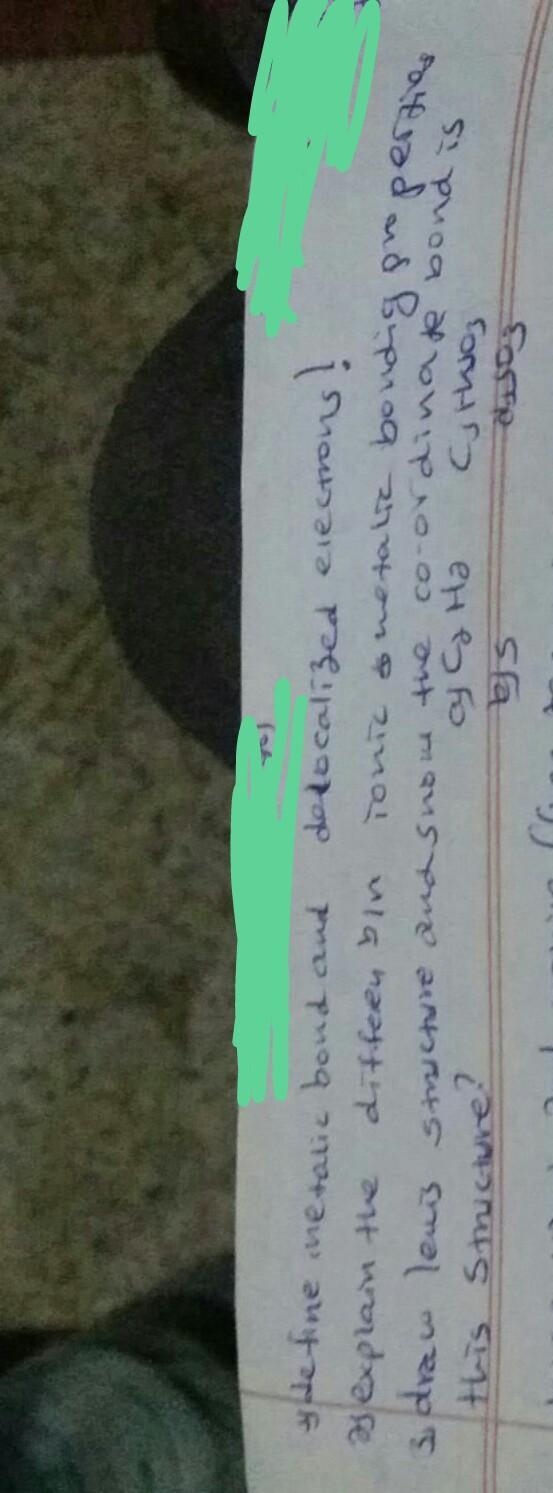 1) define metalic bond and delocalized electrons!
2) explain the differen b/n ionic & metalic bonding properties
3, draw lewis structure and show the co-ordinate bond is
this structure? a) C2H2 C, HNO3
b, S d, SO3